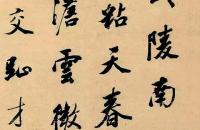 陵南
粘天春
澹雲微
交趾才